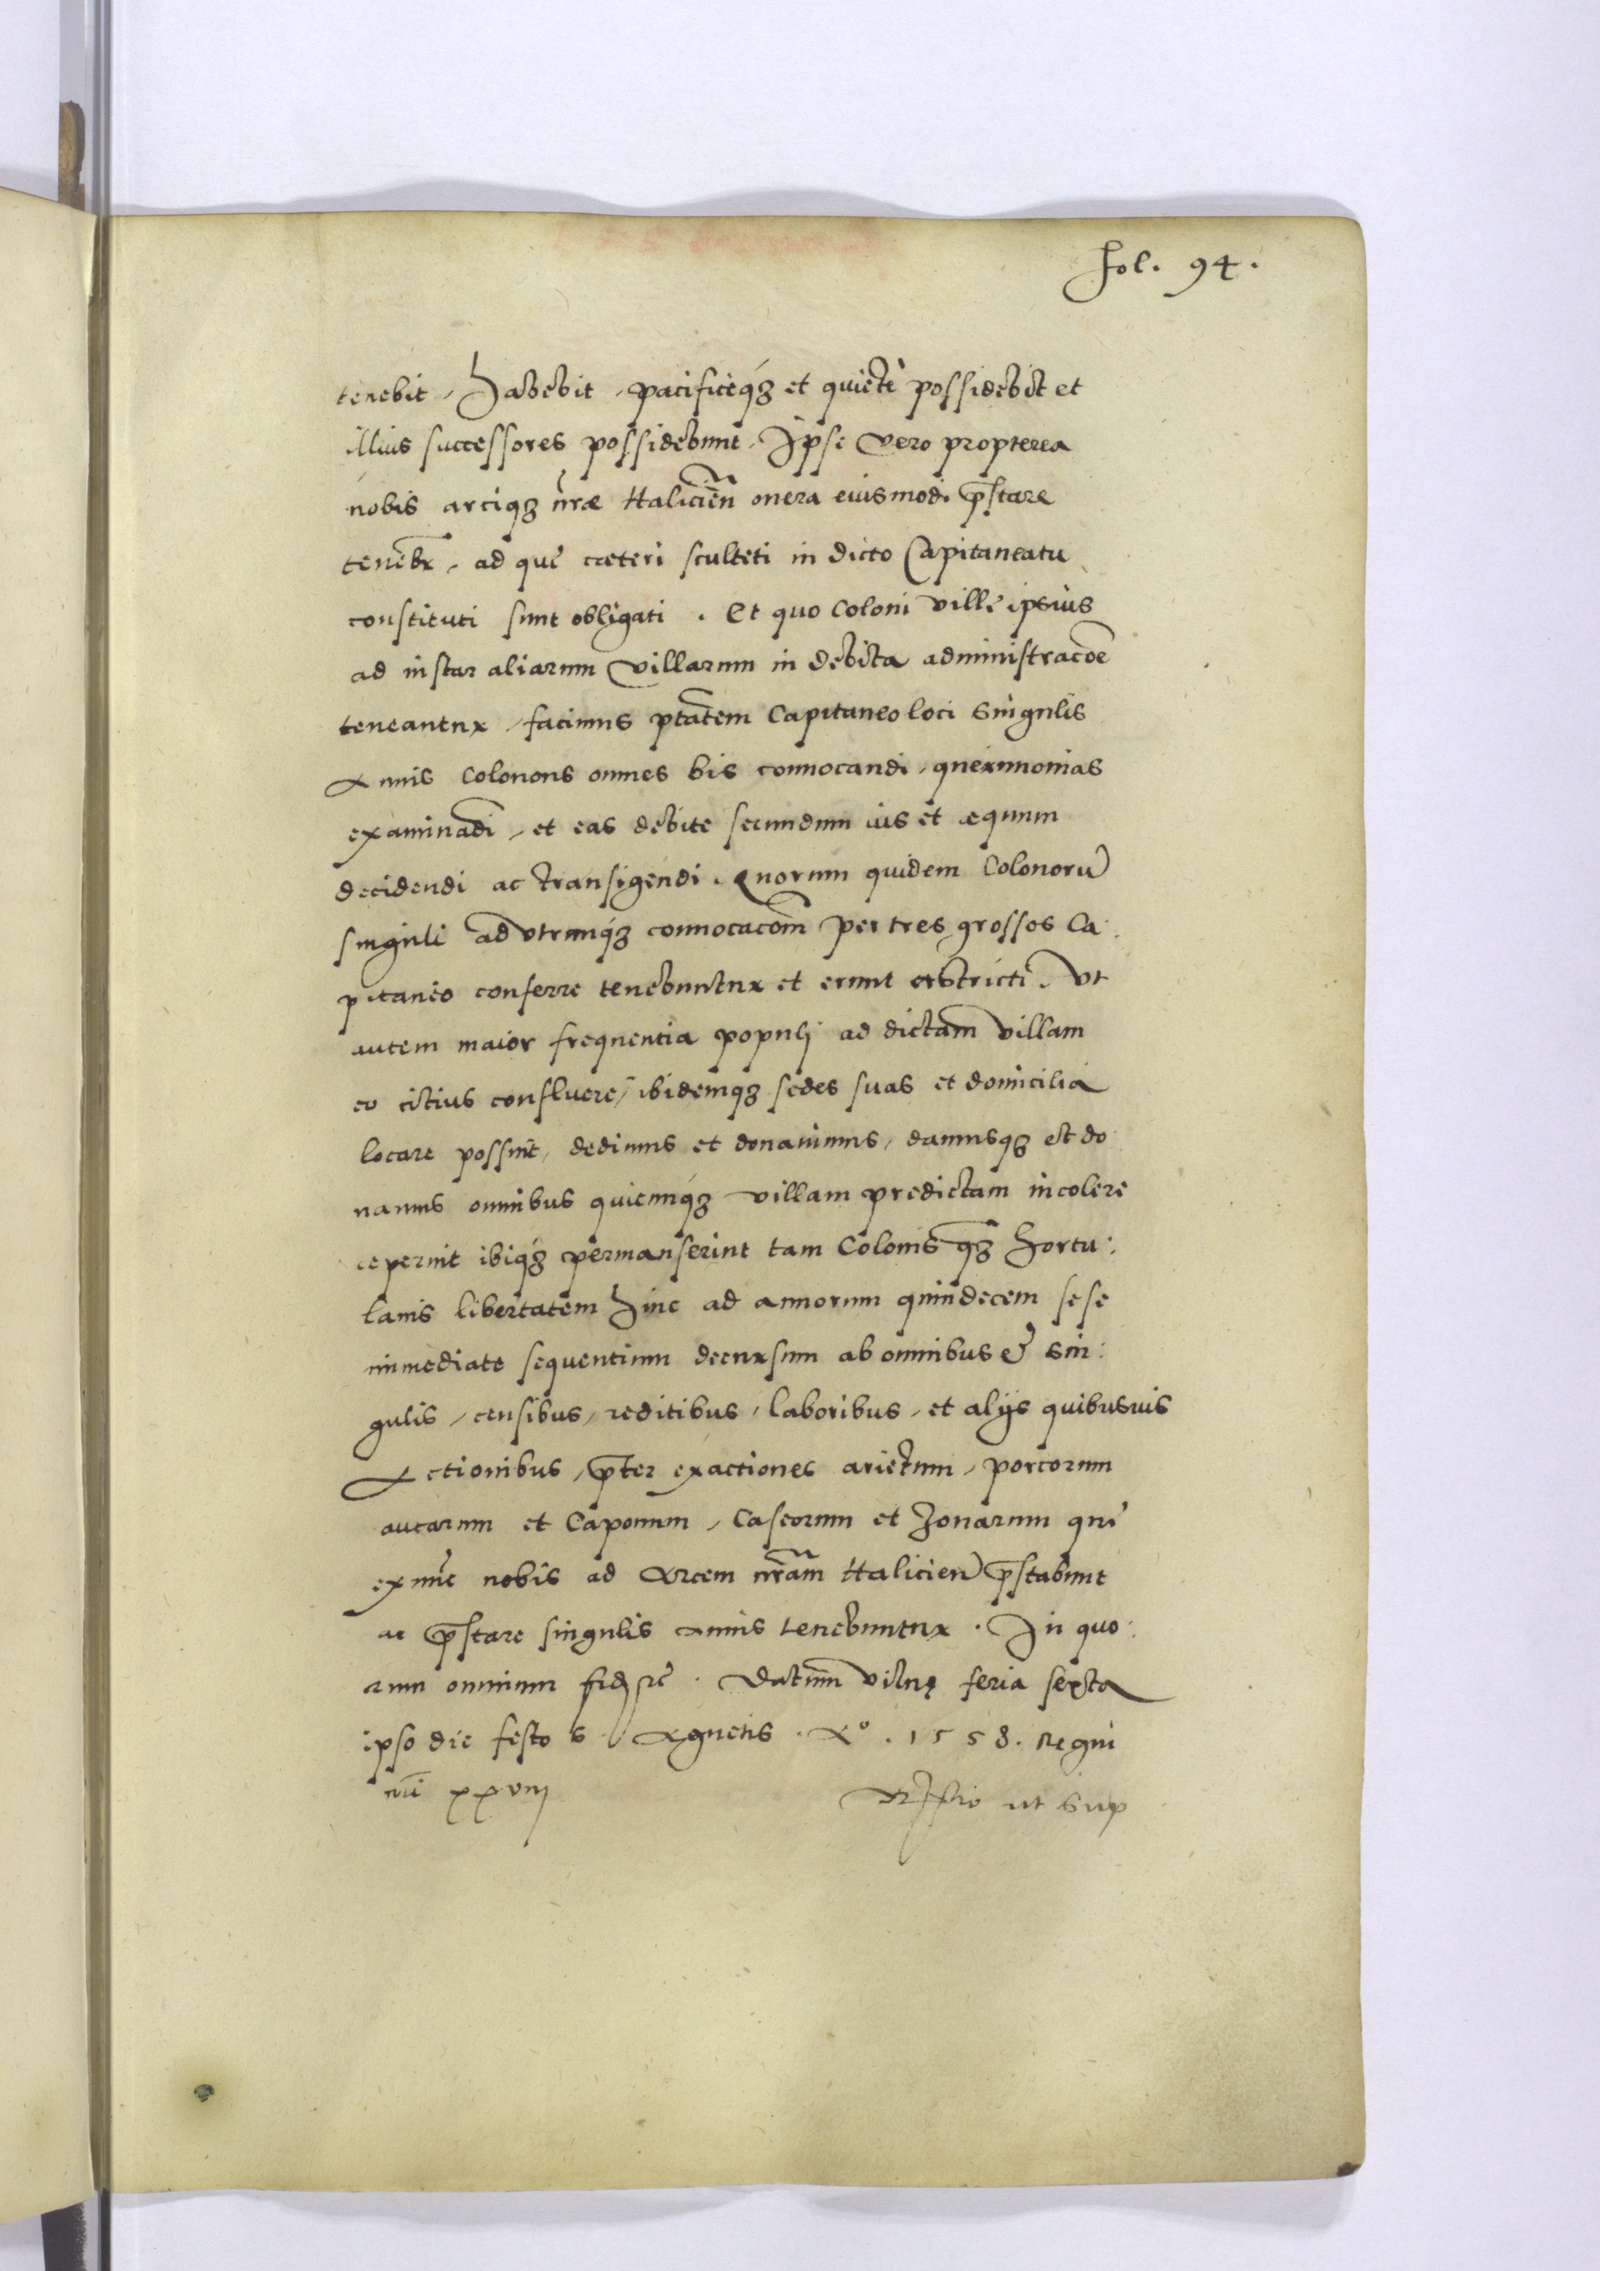 Fol. 94.
tenebit, habebit, pacificeq́ꝫ et quietè possidebit et
illius successores possidebunt, Ipse vero propterea
nobis arciqꝫ nr̃æ Haliciẽn onera eiusmodi p̃stare
tenebr̃, ad que cæteri sculteti in dicto Capitaneatu
constituti sunt obligati. Et quo Coloni ville ipsius
ad instar aliarum villarum in debita administracõe
teneantur, facimus ptãtem Capitaneo loci singulis
Annis Colonons omnes bis conuocandi, quærimonias
examinãdi, et eas debite secundum ius et æquum
decidendi ac transigendi. Quorum quidem Colonorũ
singuli ad vtramq́ꝫ conuocacõm per tres grossos Ca:
pitaneo conferre tenebuntur et erunt astricti. Vt
autem maior frequentia populi ad dictam villam
eo citius confluere, ibidemqꝫ sedes suas et domicilia
locare possint, dedimus et donauimus, damusqꝫ et do
namus omnibus quicunq́ꝫ villam predictam incolere
ceperint ibiq́ꝫ permanserint tam Colonis q̃ꝫ hortu:
lanis libertatem hinc ad annorum quindecem sese
immediate sequentium decursum ab omnibus & sin:
gulis, censibus, reditibus, laboribus, et alijs quibusuis
Actionibus, p̃ter exactiones arietum, porcorum
aucarum et Caponum, Caseorum et Zonarum que
ex nũc nobis ad Arcem nr̃am Halicien̄ p̃stabunt
ac p̃stare singulis annis tenebuntur. In quo:
rum omnium fid rẽ. Datum vilnę feria sexta
ipso die festo S. Agnetis. Aᵒ. 1558. Regni
nr̃i xxviij
R͠lio ut sup